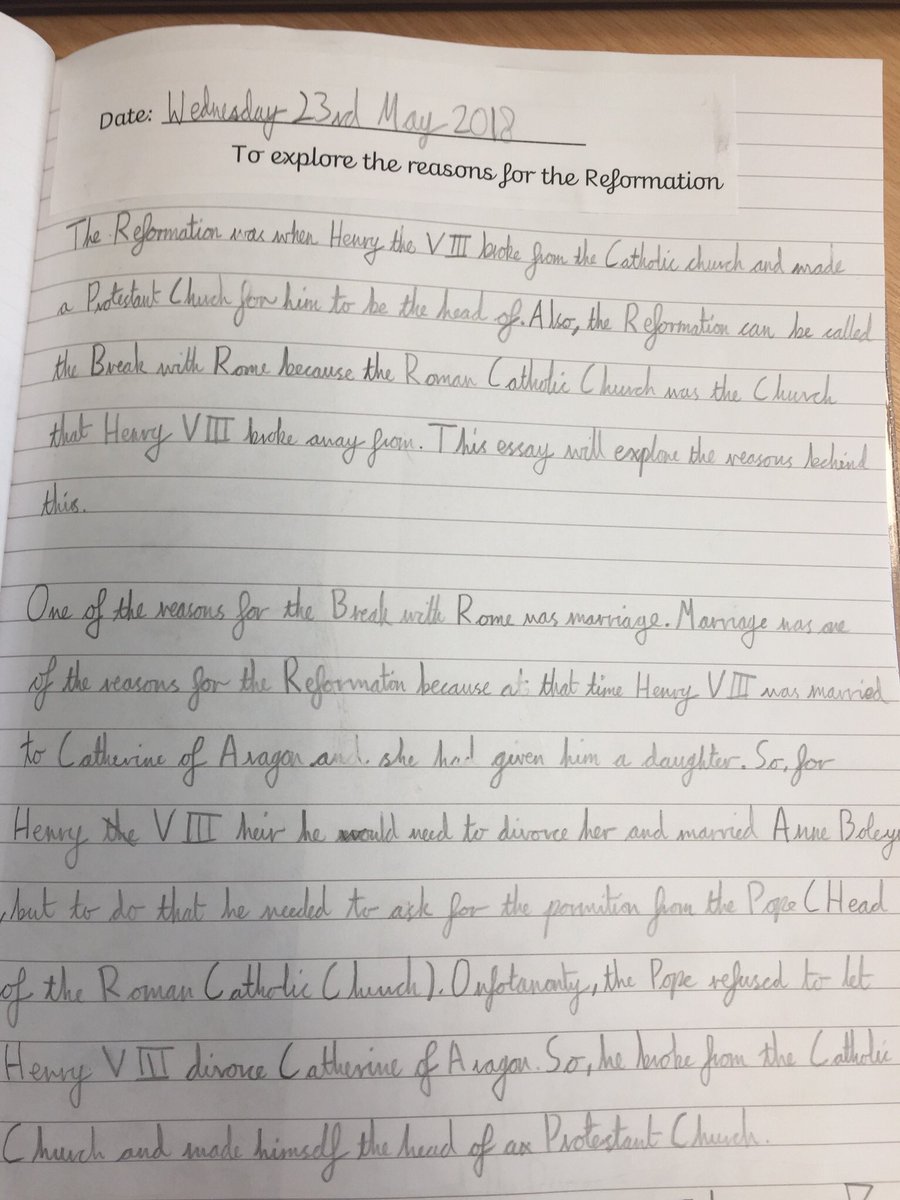 Date: Wednesday 23rd May 2018
To explore the reasons for the Reformation
The Reformation was when Henry the VIII broke from the Catholic church and made
a Protestant Church for him to be the head of. Also, the Reformation can be called
the Break with Rome because the Roman Catholic Church was the Church
that Henry VIII broke away from. This essay will explore the reasons behind
this.
One of the reasons for the Break with Rome was marriage. Marriage was one
of the reasons for the Reformation because at that time Henry VIII was married
to Catherine of Aragon and she had given him a daughter. So, for
Henry the VIII heir he would need to divorce her and married Anne Boleyn
, but to do that he needed to ask for the pormition from the Pope (Head
of the Roman Catholic Church). Onfotanonty, the Pope refused to let
Henry VIII divorce Catherine of Aragon. So, he broke from the Catholic
Church and made himself the head of an Protestant Church.